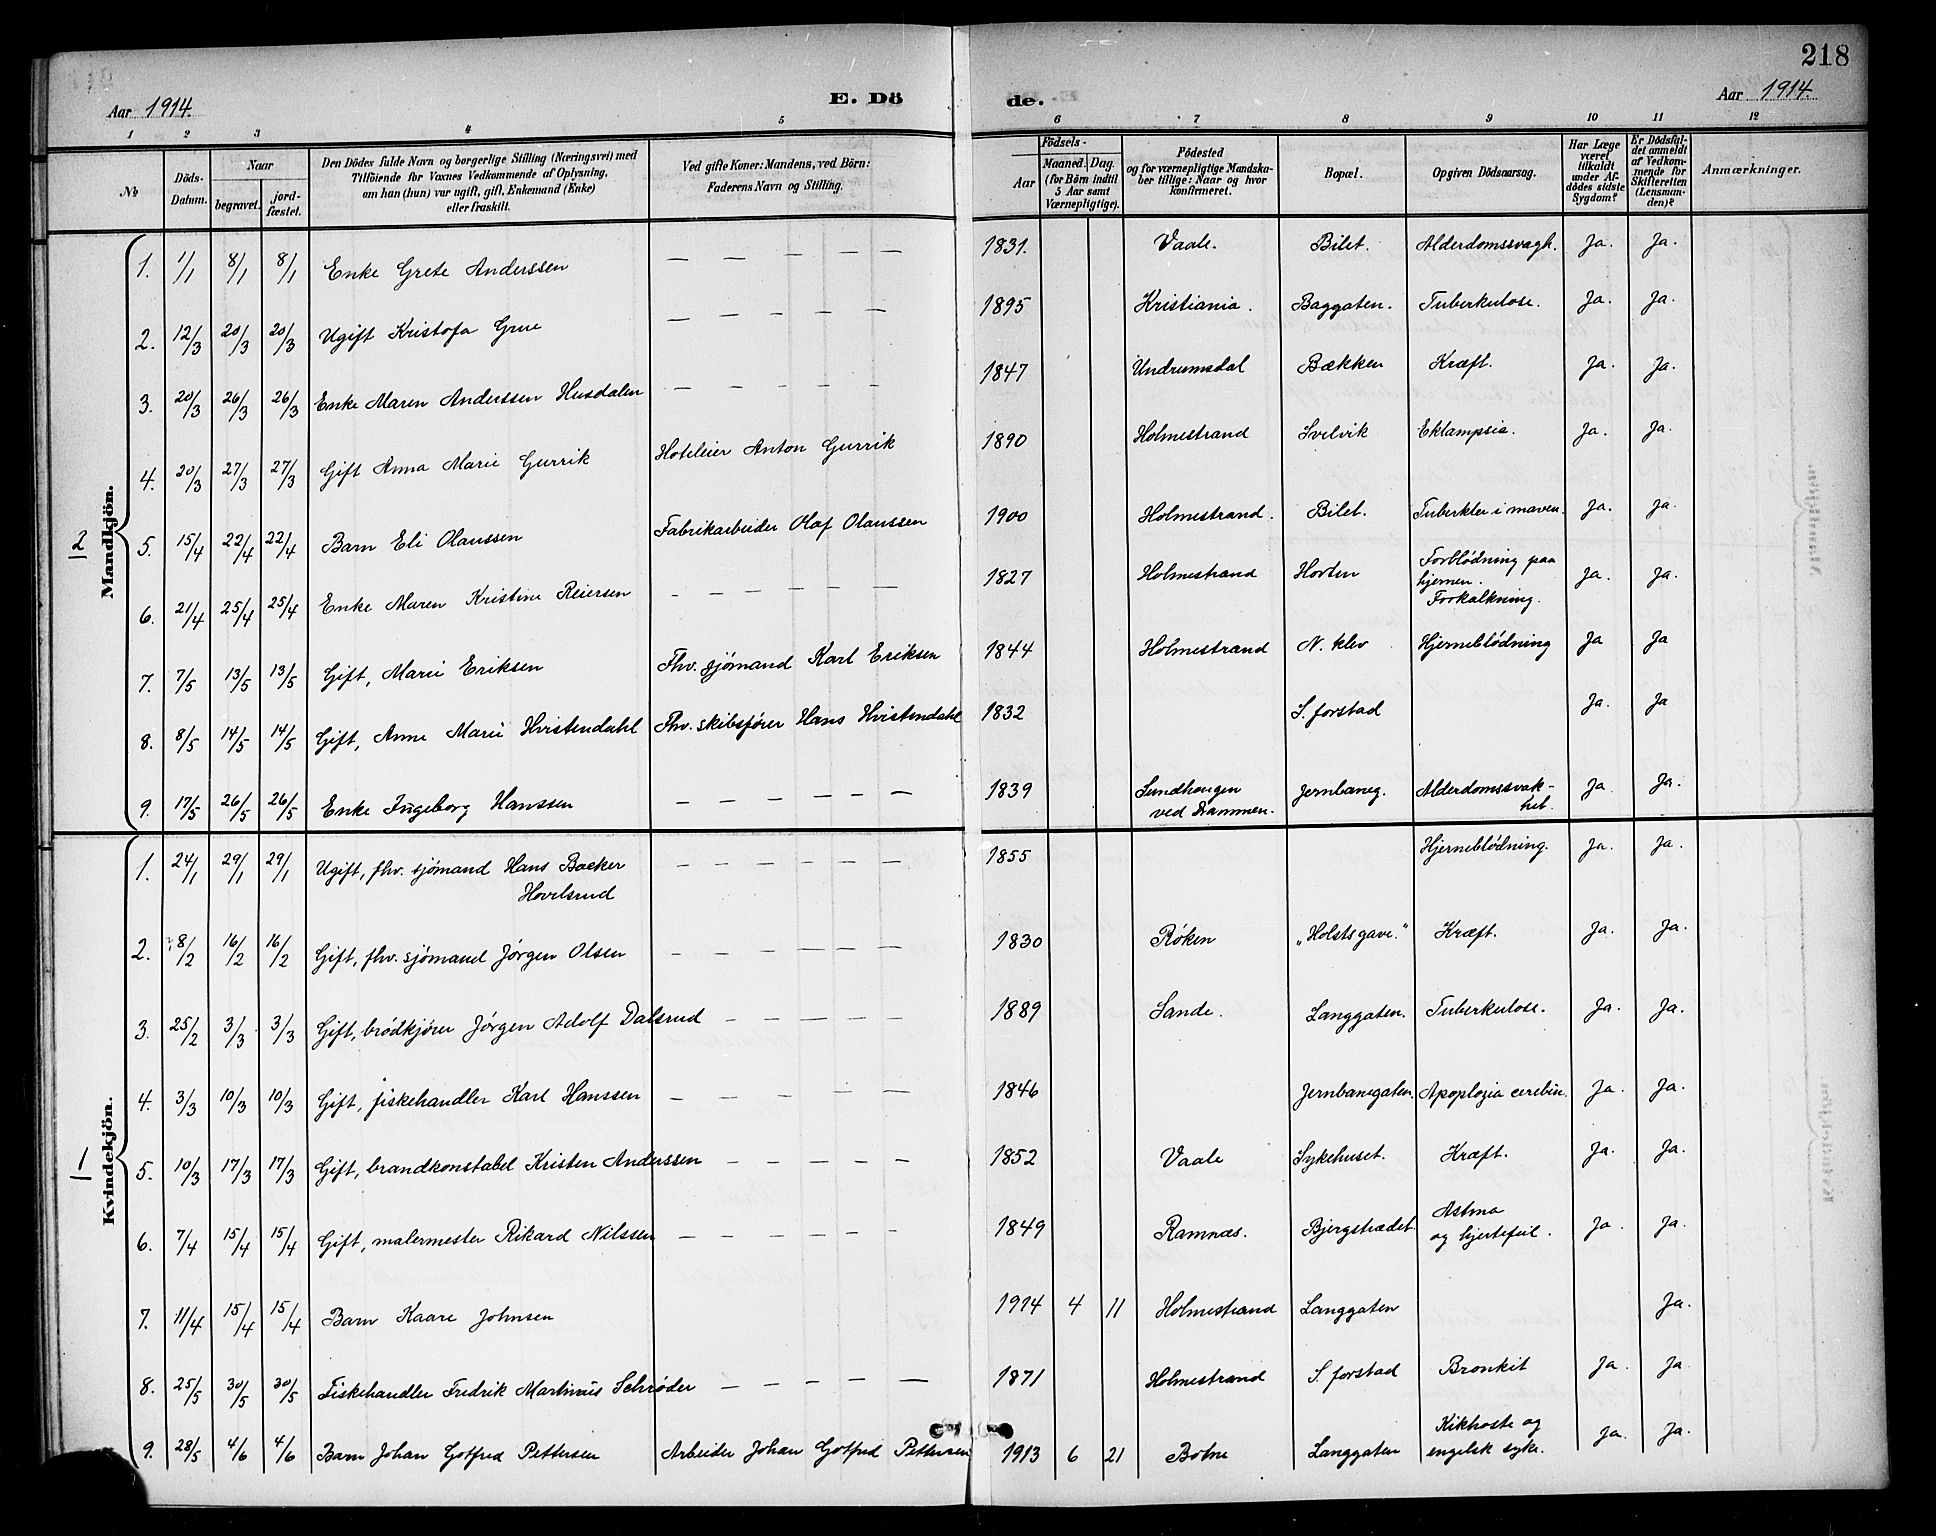 218
Aar 1914. E. Dö de. Aar 1914.
1 2 3 4 5 6 7 8 9 10 11 12
No
Döds-Datum.
Naar
begravet.
jordfæstet.
Den Dödes fulde Navn og borgerlige Stilling (Næringsvei) med
Tilföiende for Voxnes Vedkommende af Oplysning,
om han (hun) var ugift, gift, Enkemand (Enke)
eller fraskilt.
Ved gifte Koner: Mandens, ved Börn:
Faderens Navn og Stilling.
Födsels-
Aar
Maaned. Dag.
(for Börn indtil
5 Aar samt
Værnepligtige).
Födested
og for værnepligtige Mandska-
ber tillige: Naar og hvor
konfirmeret.
Bopæl.
Opgiven Dödsaarsag.
Har Læge
været
tilkaldt
under Af-
dödes sidste
Sygdom?
Er Dödsfal-
det anmeldt
af Vedkom-
mende for
Skifteretten
(Lensman-
den)?
Anmærkninger.
2 Mandkjön.
1. 1/1 8/1 8/1 Enke Grete Anderssen — — — — — 1831. Vaale. Bilet. Alderdomssvagh. Ja. Ja.
2. 12/3 20/3 20/3 Ugift Kristofa Grue — — — — — 1895 Kristiania. Baggaten. Tuberkulose. Ja. Ja.
3. 20/3 26/3 26/3 Enke Maren Anderssen Husdalen — — — — — 1847 Undrumsdal Bækken Kræft. Ja. Ja.
4. 20/3 27/3 27/3 Gift Anna Marie Gurrik Hoteleier Anton Gurrik 1890 Holmestrand Svelvik Eklampsia. Ja. Ja.
5. 15/4 22/4 22/4 Barn Eli Olaussen Fabrikarbeider Olaf Olaussen 1900 Holmestrand. Bilet. Tuberkler i maven. Ja. Ja.
6. 21/4 25/4 25/4 Enke Maren Kristine Reiersen — — — — — 1827 Holmestrand Horten Forblödning paa
hjernen.
Forkalkning. Ja. Ja.
7. 7/5 13/5 13/5 Gift, Marie Eriksen Fhv. sjømand Karl Eriksen 1844 Holmestrand N. klev Hjerneblödning Ja Ja
8. 8/5 14/5 14/5 Gift, Anne Marie Hvistendahl Fhv. skibsfører Hans Hvistendahl 1832 S. forstad Ja. Ja
9. 17/5 26/5 26/5 Enke Ingeborg Hanssen — — — — — 1839 Sundhaugen
ved Drammen. Jernbaneg. Alderdomssvak-
het. Ja. Ja.
1 Kvindekjön.
1. 24/1 29/1 29/1 Ugift, fhv. sjömand Hans Backer
Hovelsrud — — — — — — 1855 Hjerneblödning. Ja. Ja.
2. 8/2 16/2 16/2 Gift, fhv. sjömand Jørgen Olsen — — — — — 1830 Röken „Holstsgave." Kræft. Ja. Ja.
3. 25/2 3/3 3/3 Gift, brödkjörer Jørgen Adolf Dalsrud — — — — — 1889 Sande. Langgaten. Tuberkulose. Ja. Ja.
4. 3/3 10/3 10/3 Gift, fiskehandler Karl Hanssen — — — — — 1846 Jernbanegaten. Apoplexia cerebri. Ja. Ja.
5. 10/3 17/3 17/3 Gift, brandkonstabel Kristen Anderssen — — — — — 1852 Vaale Sykehuset. Kræft. Ja. Ja.
6. 7/4 15/4 15/4 Gift, malermester Rikard Nilssen — — — — — 1849 Ramnæs. Bjergstrædet. Astma
og hjertefeil. Ja. Ja.
7. 11/4 15/4 15/4 Barn Kaare Johnsen 1914 4 11 Holmestrand Langgaten Ja.
8. 25/5 30/5 30/5 Fiskehandler Fredrik Martinius Schrøder — — — — — — 1871 Holmestrand S. forstad Bronkit Ja. Ja.
9. 28/5 4/6 4/6 Barn Johan Gotfred Pettersen Arbeider Johan Gotfred Pettersen 1913 6 21 Botne Langgaten Kikhoste og
engelsk syke. Ja. Ja.